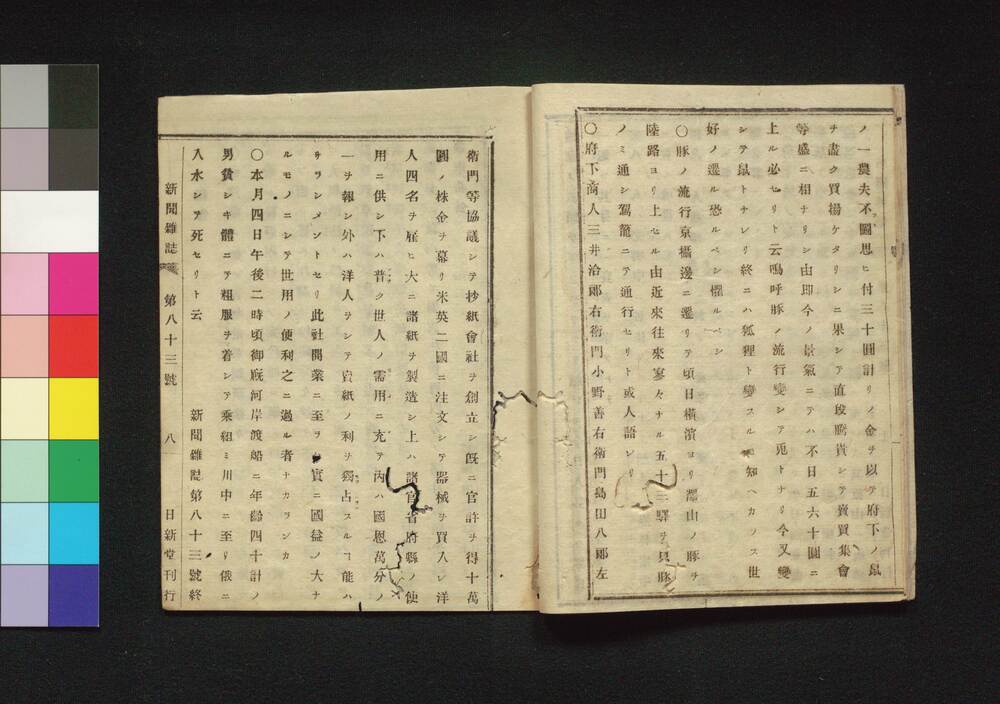 ノ一農夫不圖思ヒ付三十圓計リノ金ヲ以テ府下ノ鼠
ヲ盡ク買揚ケタリシニ果シテ直段騰貴シテ賣買集會
等盛ニ相ナリシ由即今ノ景氣ニテハ不日五六十圓ニ
上ル必セリト云嗚呼豚ノ流行變シテ兎トナリ今又變
シテ鼠トナレリ終ニハ狐狸ト變スルモ知ヘカラス世
好ノ遷ル恐ルベシ懼ルベシ
〇豚ノ流行京攝邊ニ遷リテ頃日横濱ヨリ澤山ノ豚ヲ
陸路ヨリ上セル由近來往來寥々ナル五十三驛ヲ只豚
ノミ通シ駕籠ニテ通行セリト或人語レリ
〇府下商人三井治郎右衛門小野善右衛門島田八郎左
衛門等協議シテ抄紙會社ヲ創立シ既ニ官許ヲ得十萬
圓ノ株金ヲ募リ米英二國ニ注文シテ器械ヲ買入シ洋
人四名ヲ雇ヒ大ニ諸紙ヲ製造シ上ハ諸官省府縣ノ使
用ニ供シ下ハ普ク世人ノ需用ニ充テ内ハ國恩萬分ノ
一ヲ報シ外ハ洋人ヲシテ賣紙ノ利ヲ獨占スルヿ能ハ
サラシメントセリ此社開業ニ至ラハ實ニ國益ノ大ナ
ルモノニシテ世用ノ便利之ニ過ル者ナカランカ
〇本月四日午後二時頃御厩河岸渡船ニ年齡四十計ノ
男賤シキ體ニテ粗服ヲ着シテ乘組ミ川中ニ至リ俄ニ
入水シテ死セリト云
新聞雜誌第八十三號終
新聞雜誌 第八十三號 八 日新堂刊行